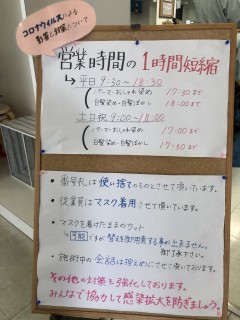 コロナウイルスによる
影響と対策について
営業時間の1時間短縮
→平日 9:30〜18:30
パーマ・おしゃれ染め 17:30まで
白髪染め・白髪ぼかし 18:00まで
土日祝 9:00〜18:00
パーマ・おしゃれ染め 17:00まで
白髪染め・白髪ぼかし 17:30まで
・番号札は使い捨てのものとさせて頂いています。
・従業員はマスク着用させて頂いています。
・マスクを着けたままのカット
→可能ですが替えを御用意する事が出来ません。
御了承下さい。
・施術中の会話は控えめにさせて頂いております。
その他の対策も強化しております。
みんなで協力して感染拡大を防ぎましょう。